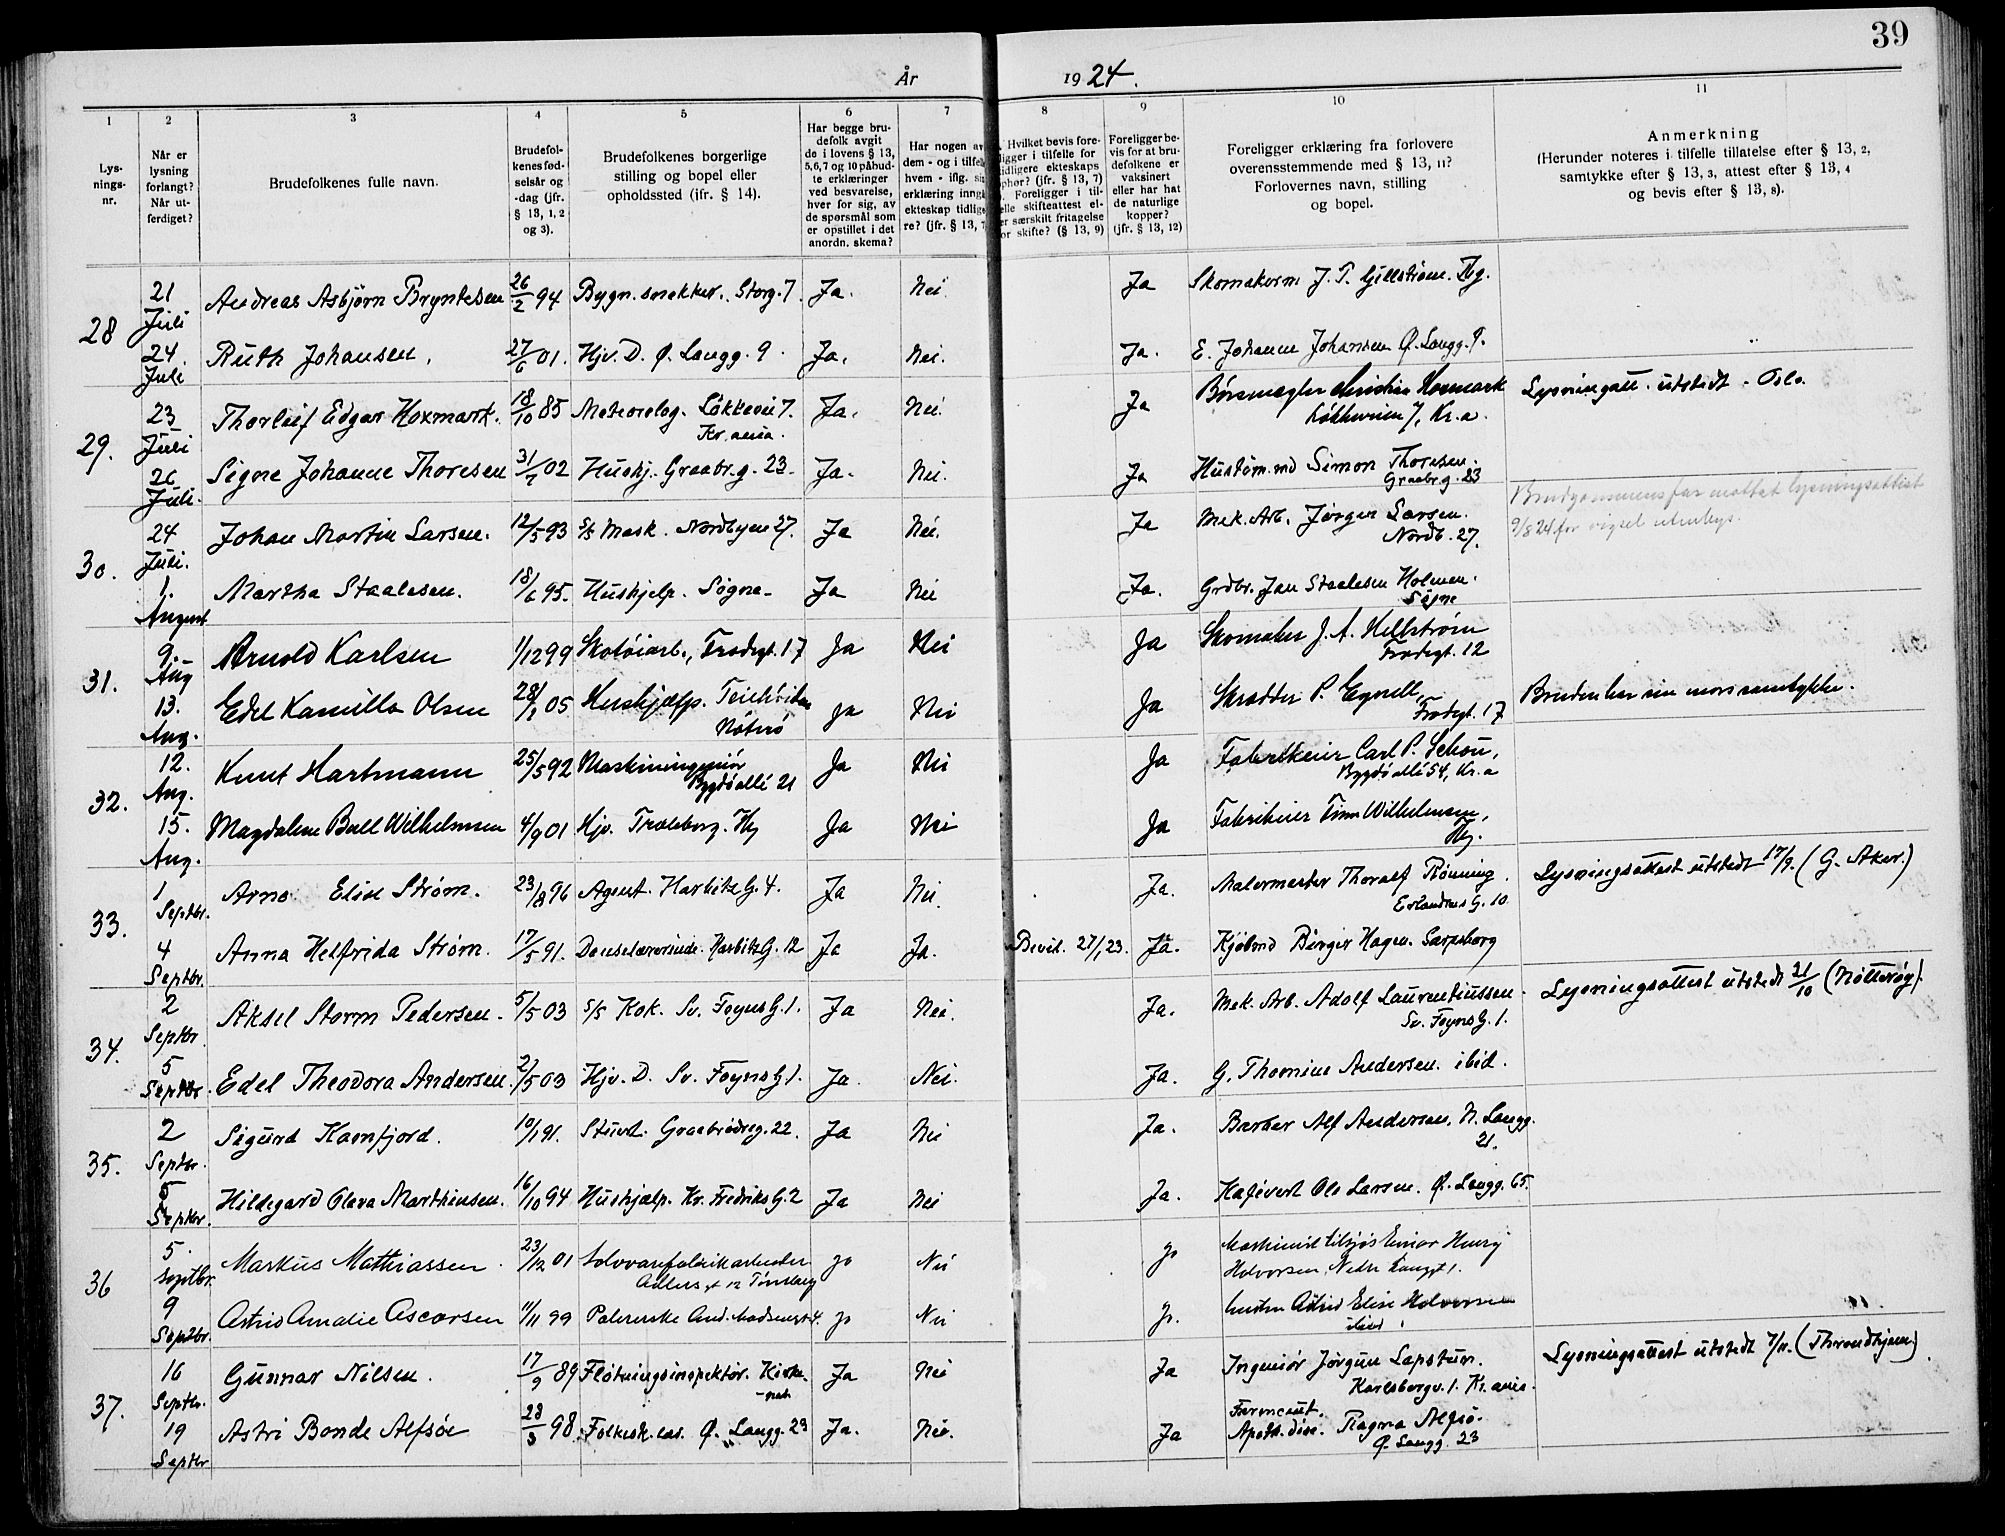 39
År 1924.
1 2 3 4 5 6 7 8 9 10 11
Lysnings-nr.
Når er lysning forlangt? Når utferdiget?
Brudefolkenes fulle navn.
Brudefolkenes fødselsår og -dag (jfr. § 13, 1, 2 og 3).
Brudefolkenes borgerlige stilling og bopel eller opholdssted (jfr. § 14).
Har begge brudefolk avgit de i lovens § 13, 5,6,7 og 10 påbudte erklæringer ved besvarelse, hver for sig, av de spørsmål som er opstillet i det anordn. skema?
Har nogen av dem - og i tilfelle hvem - iflg. erklæring ekteskap tidligere? (jfr. § 13,
Hvilket bevis foreligger i tilfelle for tidligere ekteskaps ophør? (jfr. § 13, 7) Foreligger i tilfelle skifteattest eller særskilt fritagelse for skifte? (§ 13, 9)
Foreligger bevis for at brudefolkene er vaksinert eller har hat de naturlige kopper? (jfr. § 13, 12)
Foreligger erklæring fra forlovere overensstemmende med § 13, 11? Forlovernes navn, stilling og bopel.
Anmerkning
(Herunder noteres i tilfelle tillatelse efter § 13, 2, samtykke efter § 13, 3, attest efter § 13, 4 og bevis efter § 13, 8).
28 21 Juli Andreas Asbjørn Bryntesen 26/2 94 Bygn. snekker. Storg. 7 Ja. Nei. Ja Skomakerm J. P. Gillstrøm. Tbg.
24. Juli Ruth Johansen. 27/6 01. Hjv. D. Ø. Langg. 9. Ja. Nei. Ja. E. Johanne Johansen Ø. Langg. 9.
29. 23 Juli Thorleif Edgar Hoxmark. 18/10 85 Meteorolog. Løkkevei 7. Kr.ania. Ja. Nei. Ja Børsmægler Christian Hoxmark Løkkeveien 7, Kr.a. Lysningatt. utstedt. Oslo.
26 Juli. Signe Johanne Thoresen 31/ 02 Hushj. Graabr.g. 23. Ja. Nei. Ja Simon Thoresen. Graabr.g. 23
30. 24 Juli. Johan Martin Larsen. 12/5 93 S/S Mask. Nordbyen 27. Ja Nei. Ja Mek. Arb. Jørgen Larsen. Nordb. 27. Brudgommens far mottat lysningsattest 9/8 24 for vigsel utenbys.
1. August Martha Staalesen. 18/6 95. Hushjelp. Søgne. Ja Nei Ja. Grdbr. Jan Staalesen Holmen. Søgne
31. 9. Aug Arnold Karlsen 1/12 99 Skotøiarb., Frodegt. 17 Ja Nei Ja Skomaker J. A. Hellstrøm Frodegt. 12
13. Aug. Edel Kamilla Olsen 28/1 05 Hushjælp. Nøterø ja Nei Ja Skrædder P. Frodegt. 17 Bruden har sin mors samtykke.
32. 12. Aug. Knut Hartmann 25/5 92 Maskiningeniør Bygdøallé 21 Ja Nei Ja Fabrikeier Carl P. Schou, Bygdø allé 54, Kr.a
15. Aug. Magdalene Bull Wilhelmsen 4/9 01 Hjv. Træleborg. Ja Nei Ja Fabrikeier Finn Wilhelmsen,
33. 1 Septbr. Arne Elise Strøm. 23/8 96 Agent. Harbitz G. 4. Ja Nei. Ja. Malermester Thoralf Rönning. Erlandsens G. 10. Lysningsattest utstedt 17/9. (G. Aker.)
4 Septbr. Anna Helfrida Strøm. 17/5 91. Danselærerinde. Harbitz G. 12 Ja Ja. Bevil. 27/1 23. Ja. Kjøbmd Birger Hagen. Sarpsborg
34. 2 Septbr Aksel Storm Pedersen. 5/5 03 S/S Kok. Sv. Foyns G. 1. Ja Nei. Ja. Mek. Arb. Adolf Laurentiussen. Sv. Foyns G. 1. Lysningsattest utstedt 21/10 (Nötterøy).
5 Septbr. Edel Theodora Andersen. 2/5 03 Hjv. D. Sv. Foyns G 1. Ja. Nei. Ja. G. Thomine Andersen. ibid.
35. 2 Septbr. Sigurd Kamfjord. 10/1 91. Stuert. Graabrødreg. 22. Ja Nei Ja. Barber Alf Andersen, N. Langg. 21.
5 Septbr. Hildegard Olava Marthinsen. 16/10 94 Hushjælp. Kr. Fredriks G. 2 Ja Nei Ja. Kafévert Ole Larsen. Ø. Langg. 65.
36 5. Septbr. Markus Mathiassen 23/12 01 Sølvvarefabrikarbeider 12 Tønsberg ja Nei ja Maskinist Einar Henry Halvorsen, Nedre Langgt 1.
9 Septbr. Astrid Amalie Ascarsen 11/11 99 Polererske And. Madsensgt 4. ja Nei ja. Astrid Elise Halvorsen ibid.
37. 16 Septbr. Gunnar Nilsen. 17/9 89 Fløtningsinspektør. Kirkenes Ja Nei Ja Ingeniør Jørgen Karlsborgv. 1. Kr.ania. Lysningsattest utstedt 7/11. (Throndhjem.)
19 Septbr Astri Bonde Alfsøe 28/3 98. Ø. Langg. 23 Ja. Nei. Ja Farmceut. Ragna Alfsø. Ø. Langg. 23